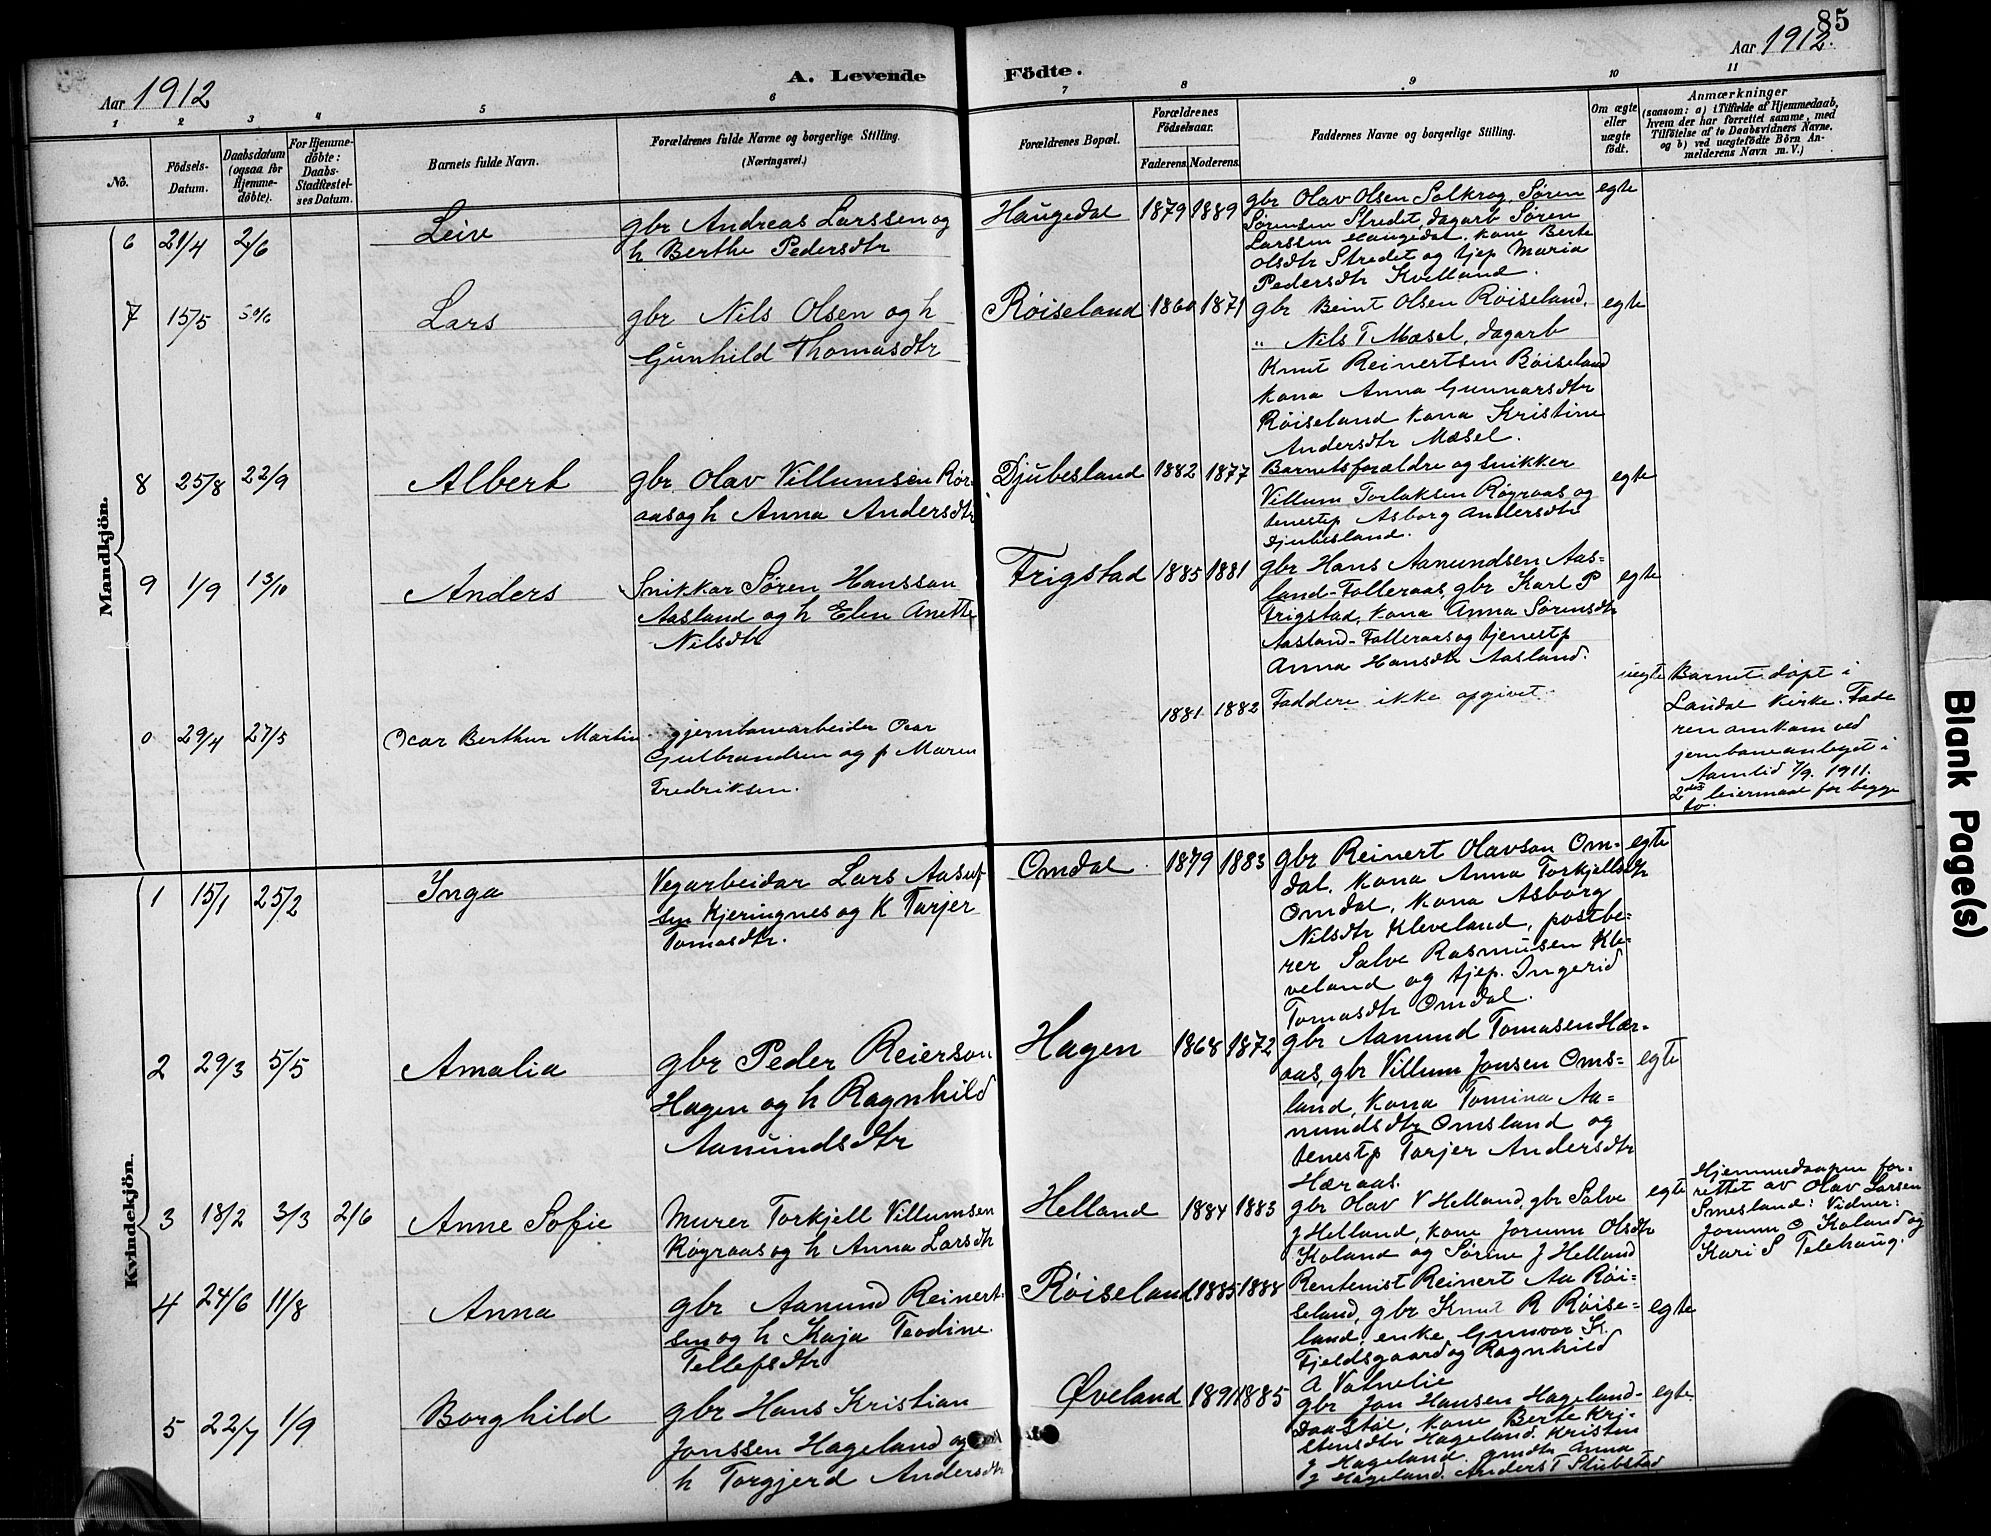 85
Aar 1912
A. Levende Fødte.
Aar 1912.
1 2 3 4 5 6 7 8 9 10 11
No.
Fødsels-Datum.
Daabsdatum (ogsaa for Hjemme-døbte).
For Hjemme-døbte: Daabs-Stadfæstel-ses Datum.
Barnets fulde Navn.
Forældrenes fulde Navne og borgerlige Stilling.
(Næringsvei.)
Forældrenes Bopæl.
Forældrenes Fødselsaar.
Faderens. Moderens.
Faddernes Navne og borgerlige Stilling.
Om ægte eller uægte født.
Anmærkninger
(saasom: a) i Tilfælde af Hjemmedaab,
hvem der har forrettet samme, med
Tilføielse af to Daabsvidners Navne,
og b) ved uægtefødte Børn An-
melderens Navn m. V.)
Mandkjön.
6 21/4 2/6 Leiv
gbr Andreas Larssen og
h Berthe Pedersdtr
Haugedal 1879 1889
gbr Olav Olsen Solkrog, Søren
Sørensen Stredet, dagarb Søren
Larssen Haugedal, kone Berte
Olsdtr Stredet og tjep Maria
Pedersdtr Kvelland.
egte
7 15/5 30/6 Lars
gbr Nils Olsen og h
Gunhild Thomasdtr
Røiseland 1860 1871
gbr Beint Olsen Røiseland,
" Nils T Mæsel, dagarb
Knut Reinertsen Røiseland
kona Anna Gunnarsdtr
Røiseland kona Kristine
Andersdtr Mæsel.
egte
8 25/8 22/9 Albert
gbr Olav Villumsen Røg-
aas og h Anna Andersdtr
Djubesland 1882 1877
Barnets forældre og snikker
Villum Torlaksen Røgraas og
tenestp Asborg Andersdtr
Djubesland.
egte
9 1/9 13/10 Anders
Snikkar Søren Hansson
Aasland og h Elen Anette
Nilsdtr
Frigstad 1885 1881
gbr Hans Aanundsen Aas-
land-Folleraas, gbr Karl P
Frigstad, kona Anna Sørensdtr
Aasland-Folleraas og tjenestp
Anna Hansdtr Aasland.
egte
0 29/4 27/5 Ocar Berthur Martin
jernbanearbeider Ocar
Gulbrandsen og p Maren
Fredriksen.
1881 1882
Faddere ikke opgivet.
uegte
Barnet døpt i
Laudal kirke. Fade
ren omkom ved
jernbaneanlæget i
Aamlid 7/9. 1911.
2det leiermaal for begge
to.
Kvindekjön.
1 15/1 25/2 Inga
Vegarbeidar Lars Aasuf-
sen Kjeringnes og K Tarjer
Tomasdtr.
Omdal 1879 1883
gbr Reinert Olavson Om-
dal, kona Anna Torkjellsdtr
Omdal, kona Asborg
Nilsdtr Kleveland, postbe-
rer Salve Rasmusen Kle-
veland og tjep. Ingerid
Tomasdtr Omdal.
egte
2 29/3 5/5 Amalia
gbr Peder Reierson
Hagen og h Ragnhild
Aanundsdtr
Hagen 1868 1872
gbr Aanund Tomasen Hær-
aas, gbr Villum Jonsen Oms-
land, kona Tomina Aa-
nundsdtr Omsland og
tenestp Tarjer Andersdtr
Hæraas.
egte
3 18/2 3/3 2/6 Anne Sofie
Murer Torkjell Villumsen
Røgraas og h Anna Larsdtr
Helland 1884 1883
gbr Olav V Helland, gbr Salve
J Helland, kone Jorunn Olsdtr
Koland og Sørine J Helland
egte
Hjemmedaapen for-
rettet av Olav Larsen
Smesland: Vidner:
Jorunn O Koland og
Kari S Telehaug.
4 24/6 11/8 Anna
gbr Aanund Reinert-
sen og h Kaja Teodine
Tellefsdtr
Røiseland 1885 1888
Rentenist Reinert Aa Røi-
seland, gbr Knut R Røise-
land, enke Gunvor K
Fjeldsgaard og Ragnhild
A Vatnelie
egte
5 22/7 1/9 Borghild
gbr Hans Kristian
Jonssen Hageland og
h Torgjerd Andersdtr
Øveland 1891 1885
gbr Jon Hansen Hageland-
Daastøl, kone Berte Kri-
stensdtr Hageland, Kristen
J Hageland, gmdtr Anna
J Hageland, Anders T Stubstad
egte
Blank Page(s)